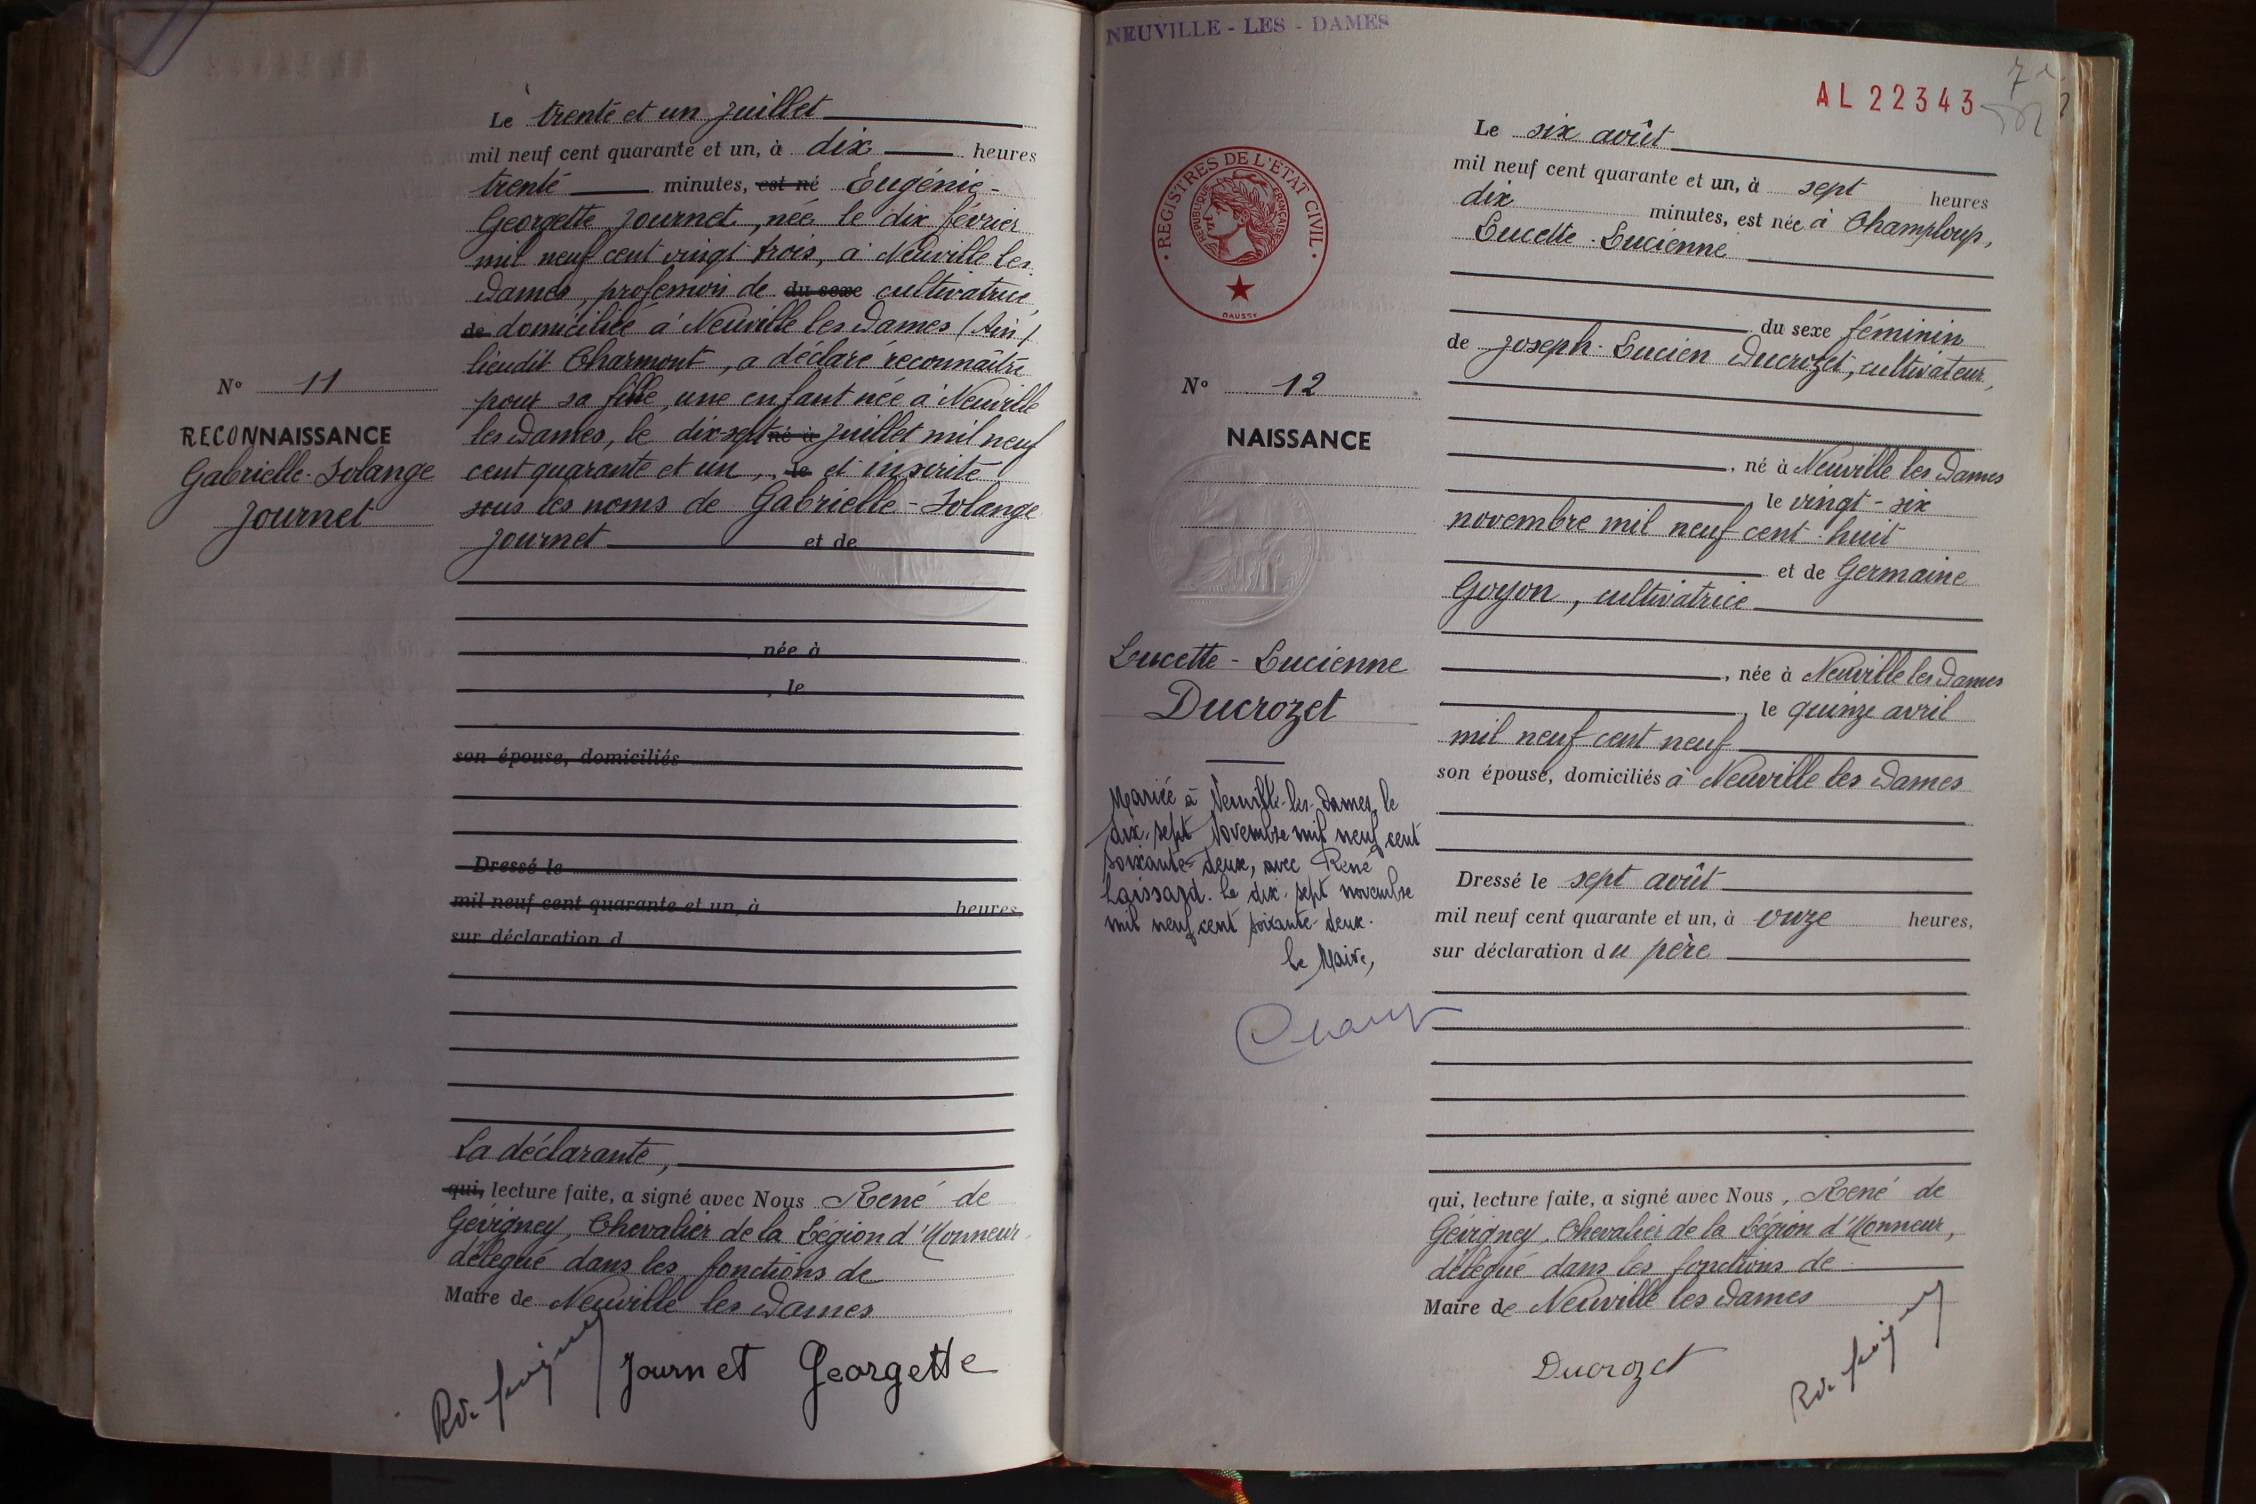 Le trente et un juillet
mil neuf cent quarante et un, à dix heures
trente minutes, est né Eugénie-
Georgette Journet, née le dix février
mil neuf cent vingt trois, à Neuville les
Dames, profession de du sexe cultivatrice
de domicilié à Neuville les Dames (Ain)
lieudit Charmont, a déclaré reconnaître
pour sa fille, une enfant née à Neuville
les Dames, le dix-sept né à juillet mil neuf
cent quarante et un, le et inscrite
sous les noms de Gabrielle-Solange
Journet et de
née à
, le
son épouse, domiciliés
Dressé le
mil neuf cent quarante et un, à heures,
sur déclaration d
La déclarante,
qui, lecture faite, a signé avec Nous René de
Gévigney, Chevalier de la Légion d'Honneur,
délégué dans les fonctions de
Maire de Neuville les Dames
Journet Georgette
N° 11
RECONNAISSANCE
Gabrielle-Solange
Journet
NEUVILLE-LES-DAMES
AL 22343
REGISTRES DE L'ÉTAT CIVIL
RÉPUBLIQUE FRANÇAISE
DAUSSY
N° 12
NAISSANCE
Lucette-Lucienne
Ducrozet
Mariée à Neuville-les-Dames, le
dix-sept Novembre mil neuf cent
soixante-deux, avec René
Laissard. Le dix-sept novembre
mil neuf cent soixante-deux.
Le Maire,
Le six août
mil neuf cent quarante et un, à sept heures
dix minutes, est née à Champloup,
Lucette-Lucienne
du sexe féminin
de Joseph-Lucien Ducrozet, cultivateur,
, né à Neuville les Dames
, le vingt-six
novembre mil neuf cent huit
et de Germaine
Goyon, cultivatrice
, née à Neuville les Dames
, le quinze avril
mil neuf cent neuf
son épouse, domiciliés à Neuville les Dames
Dressé le sept août
mil neuf cent quarante et un, à onze heures,
sur déclaration du père
qui, lecture faite, a signé avec Nous, René de
Gévigney, Chevalier de la Légion d'Honneur,
délégué dans les fonctions de
Maire de Neuville les Dames
Ducrozet